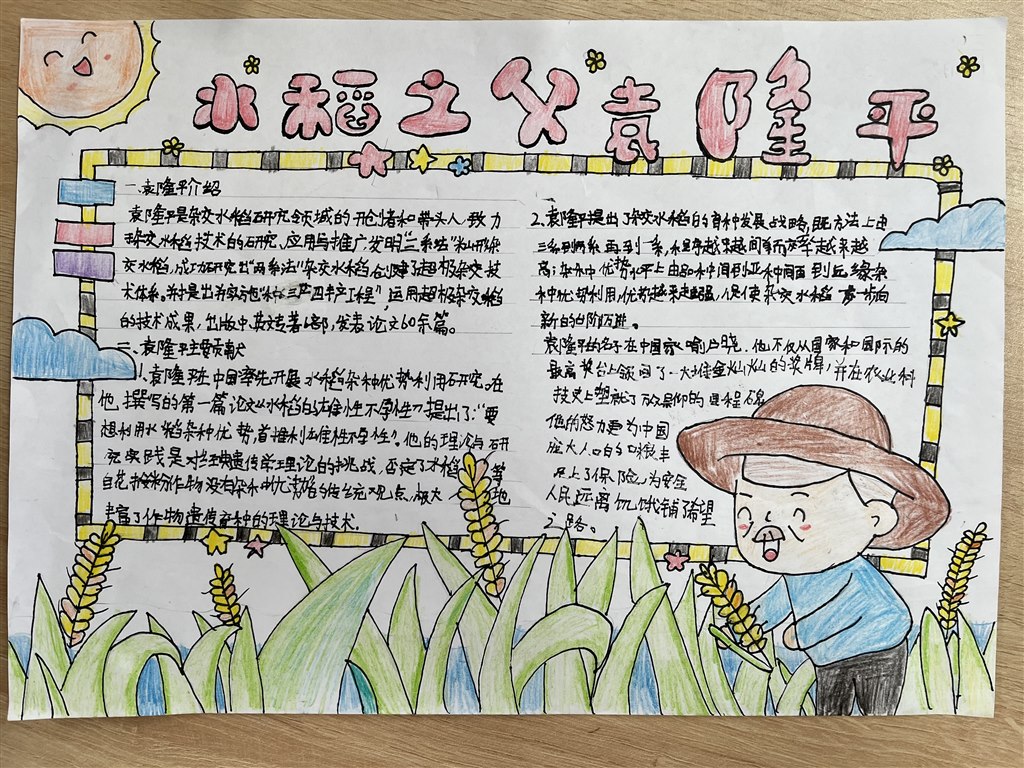 水稻之父袁隆平
一、袁隆平介绍
袁隆平是杂交水稻研究领域的开创者和带头人,致力
杂交水稻技术的研究、应用与推广发明"三系法"籼型杂
交水稻,成功研究出"两系法"杂交水稻,创建了超级杂交技
术体系。并提出并实施"种三产四丰产工程",运用超级杂交稻
的技术成果,出版中英文专著6部,发表论文60余篇。
二、袁隆平主要贡献
1、袁隆平在中国率先开展水稻杂种优势利用研究。在
他撰写的第一篇论文《水稻的雄性不孕性》提出了:"要
想利用水稻杂种优势,首推利雄性不孕性"。他的理论与研
究实践是对经典遗传学理论的挑战,否定了水稻 等
自花授粉作物没有杂种优势的传统观点,极大 地
丰富了作物遗传育种的理论与技术.
2、袁隆平提出了杂交水稻的育种发展战略,既方法上由
三系到两系再到一系,程序越来越简单而效率越来越
高;杂种优势水平上由品种间到亚种间再到远缘杂
种优势利用,优势越来越强,促使杂交水稻一步步向
新的台阶迈进。
袁隆平的名字在中国家喻户晓。他不仅从国家和国际的
最高奖台上领回了一大堆金灿灿的奖牌,并在农业科
技史上塑就了 的里程碑
他的努力更为中国
庞大人口的口粮丰
足上了保险,为安全
人民远离饥饿铺了希望
之路。